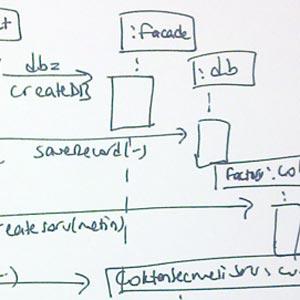 t
:facade
dbz
createDB
:db
saveRecord(-)
factory:Cok
eatesoru(metin)
Coktansecmeli soru, co